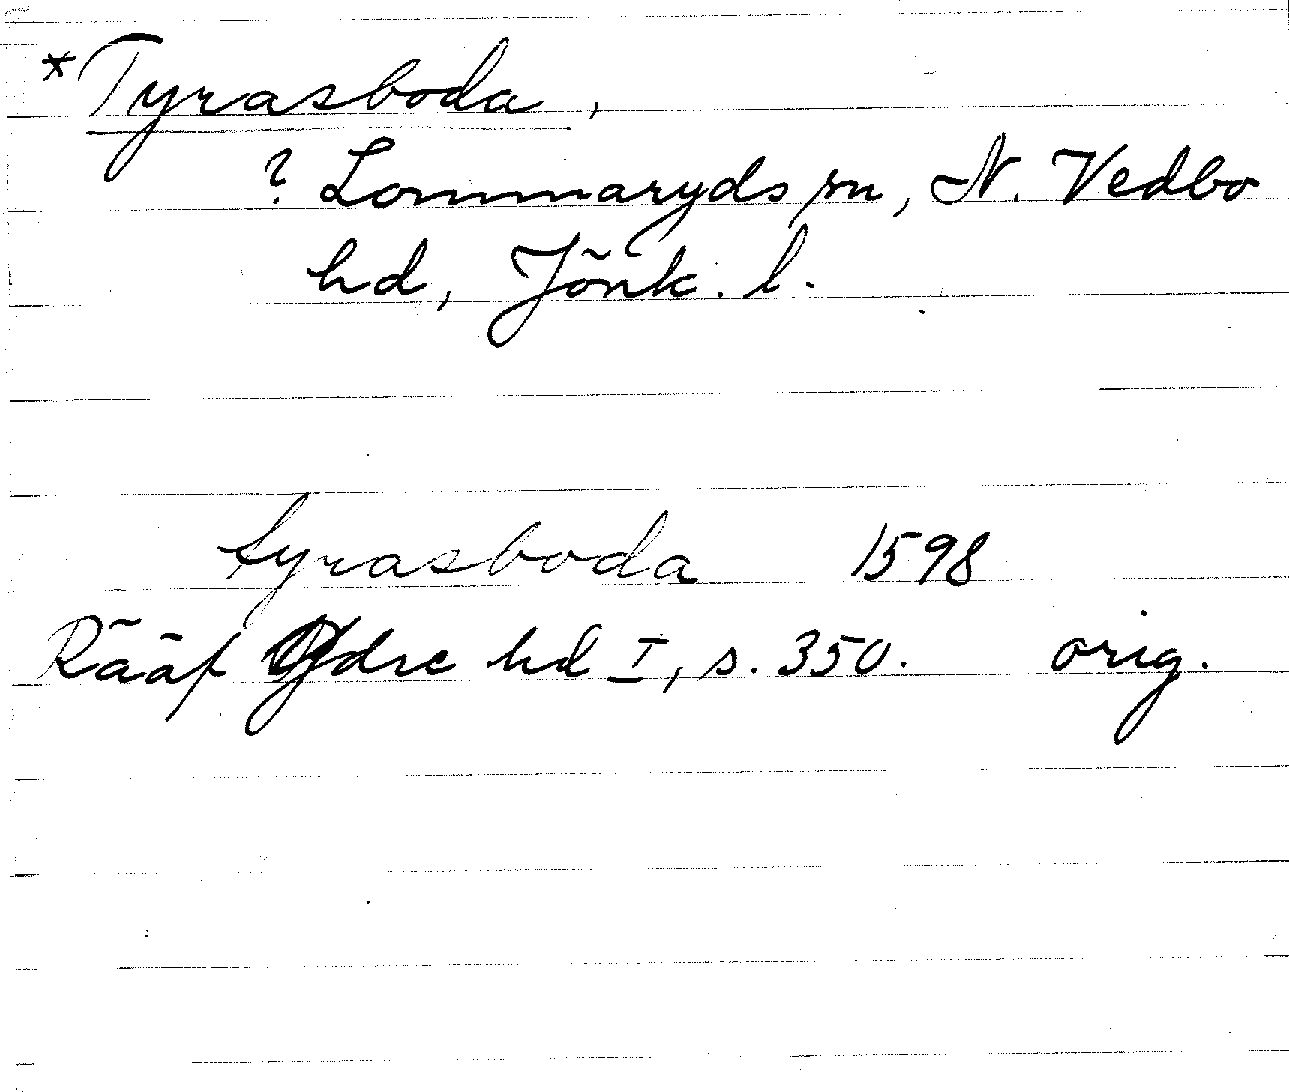 *Tyrasboda,
? Lommaryds sn, N. Vedbo
hd, Jönk. l.
tyrasboda 1598
Rääf Ydre hd I, s. 350. orig.